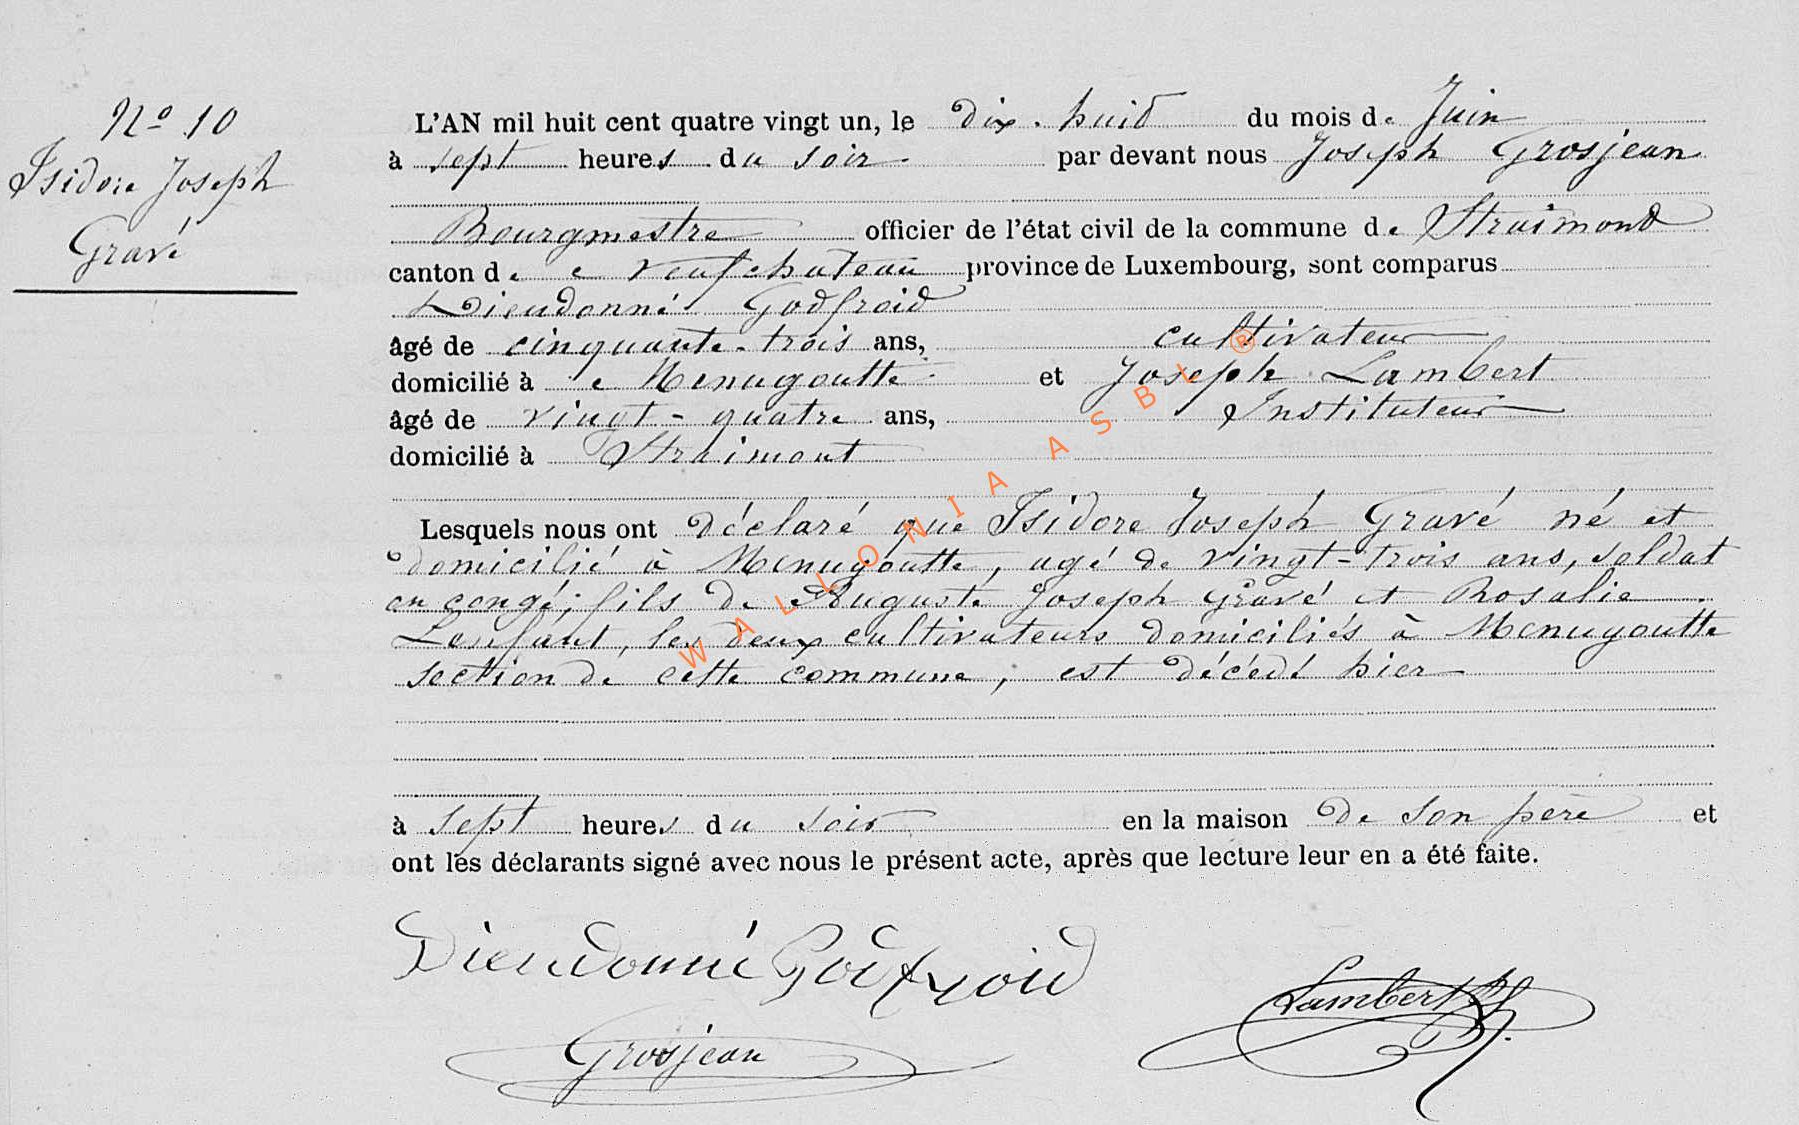 Nº 10
Isidore Joseph
Gravé
L'AN mil huit cent quatre vingt un, le dix-huit du mois de Juin
à sept heures du soir par devant nous Joseph Grosjean
Bourgmestre officier de l'état civil de la commune de Straimond
canton de Neufchateau province de Luxembourg, sont comparus
Dieudonné Godfroid
âgé de cinquante-trois ans, cultivateur
domicilié à Menugoutte et Joseph Lambert
âgé de vingt-quatre ans, Instituteur
domicilié à Straimont
Lesquels nous ont déclaré que Isidore Joseph Gravé né et
domicilié à Menugoutte, agé de vingt-trois ans, soldat
en congé; fils de Auguste Joseph Gravé et Rosalie
Lenfant, les deux cultivateurs domiciliés à Menugoutte
section de cette commune, est décédé hier
à sept heures du soir en la maison de son père et
ont les déclarants signé avec nous le présent acte, après que lecture leur en a été faite.
Dieudonné Godfroid
Lambert
Grosjean
WALLONIA ASBL ®